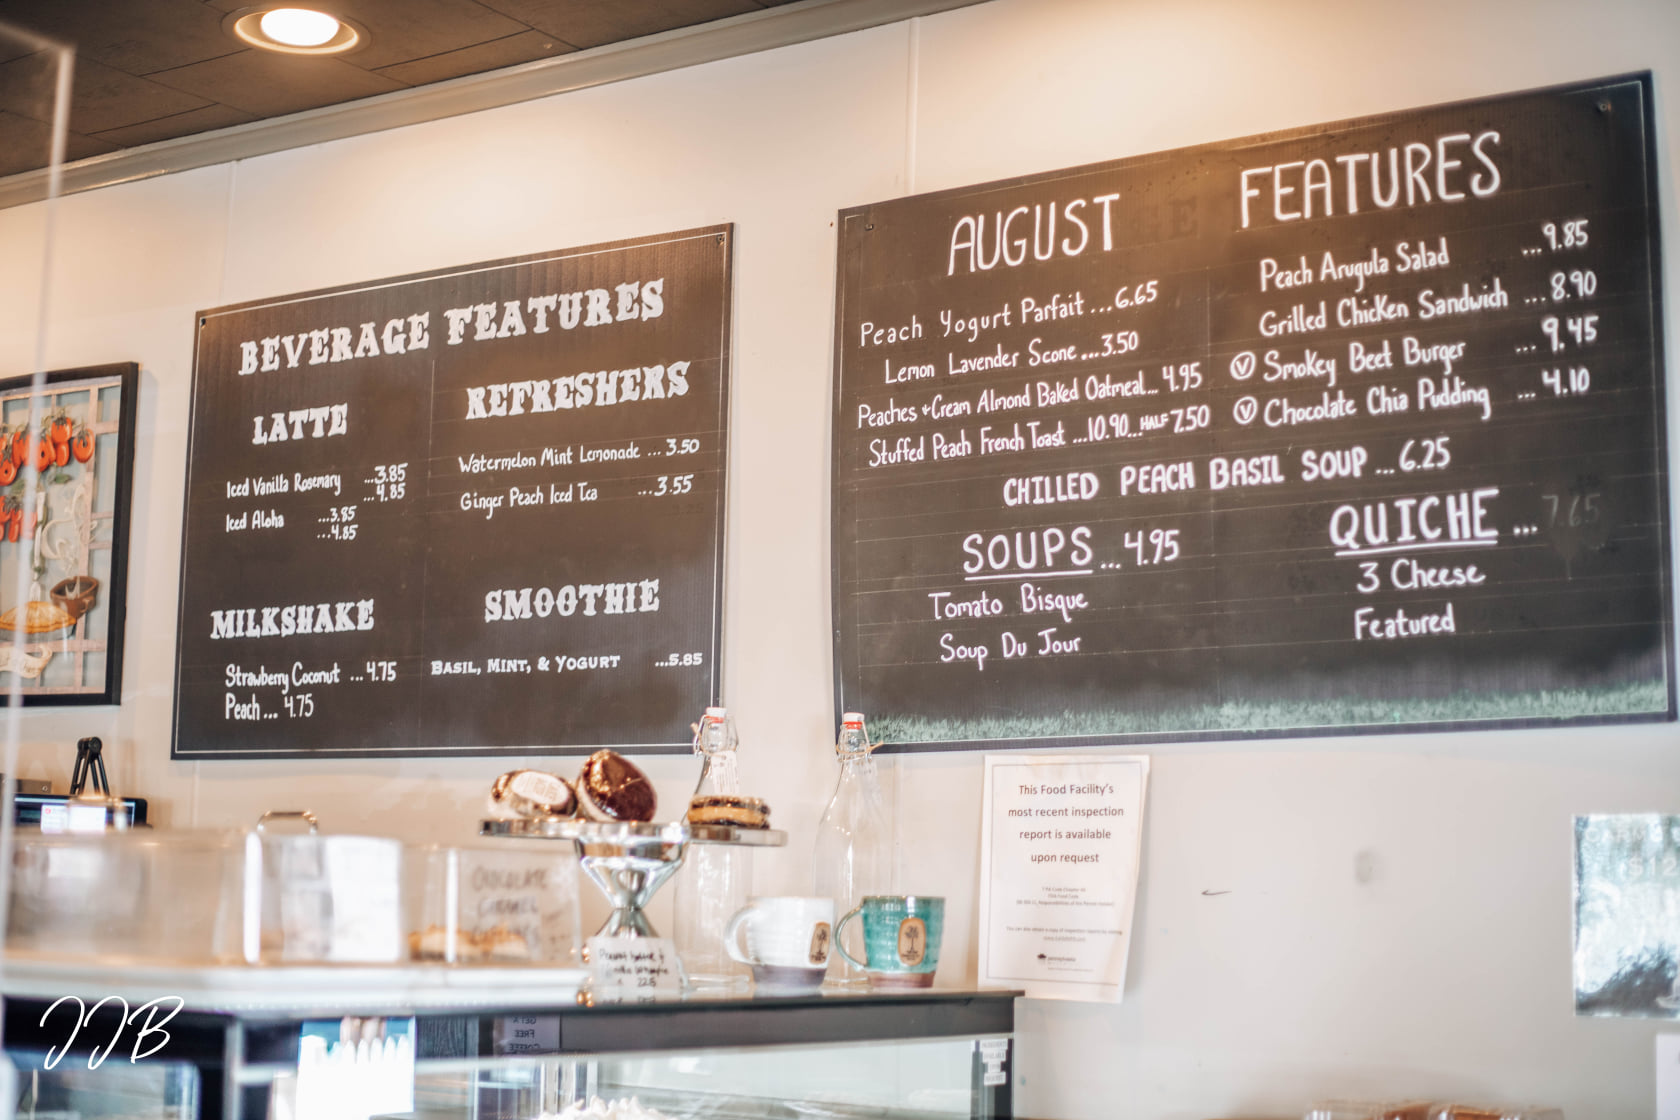 BEVERAGE FEATURES
LATTE
Iced Vanilla Rosemary ...3.85
...4.85
Iced Aloha ...3.85
...4.85
REFRESHERS
Watermelon Mint Lemonade ...3.50
Ginger Peach Iced Tea ...3.55
MILKSHAKE
Strawberry Coconut ...4.75
Peach... 4.75
SMOOTHIE
BASIL, MINT, & YOGURT ...5.85
AUGUST FEATURES
Peach Yogurt Parfait ...6.65
Lemon Lavender Scone...3.50
Peaches + Cream Almond Baked Oatmeal... 4.95
Stuffed Peach French Toast ...10.90...HALF 7.50
Peach Arugula Salad ...9.85
Grilled Chicken Sandwich ...8.90
V Smokey Beet Burger ...9.45
V Chocolate Chia Pudding ...4.10
CHILLED PEACH BASIL SOUP ...6.25
SOUPS...4.95
Tomato Bisque
Soup Du Jour
QUICHE ...7.65
3 Cheese
Featured
This Food Facility's
most recent inspection
report is available
upon request
CHOCOLATE
CARAMEL
GET A
FREE
COFFEE
JJB